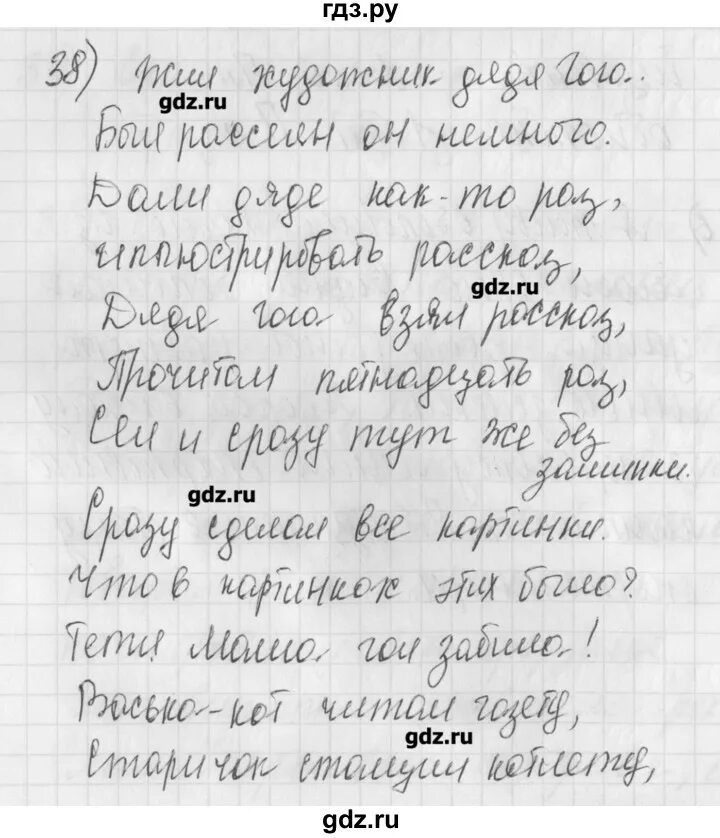 гдз.ру
38) Жил художник дядя Гога.
gdz.ru
Был рассеян он немного.
Дали дяде как-то раз,
иллюстрировать рассказ,
gdz.ru
Дядя Гога взял рассказ,
Прочитал пятнадцать раз,
Сел и сразу тут же без
запинки.
gdz.ru
Сразу сделал все картинки.
Что в картинках этих было?
Тетя Маша гол забила!
Васька-кот читал газету,
gdz.ru
Старичок стащил котлету,